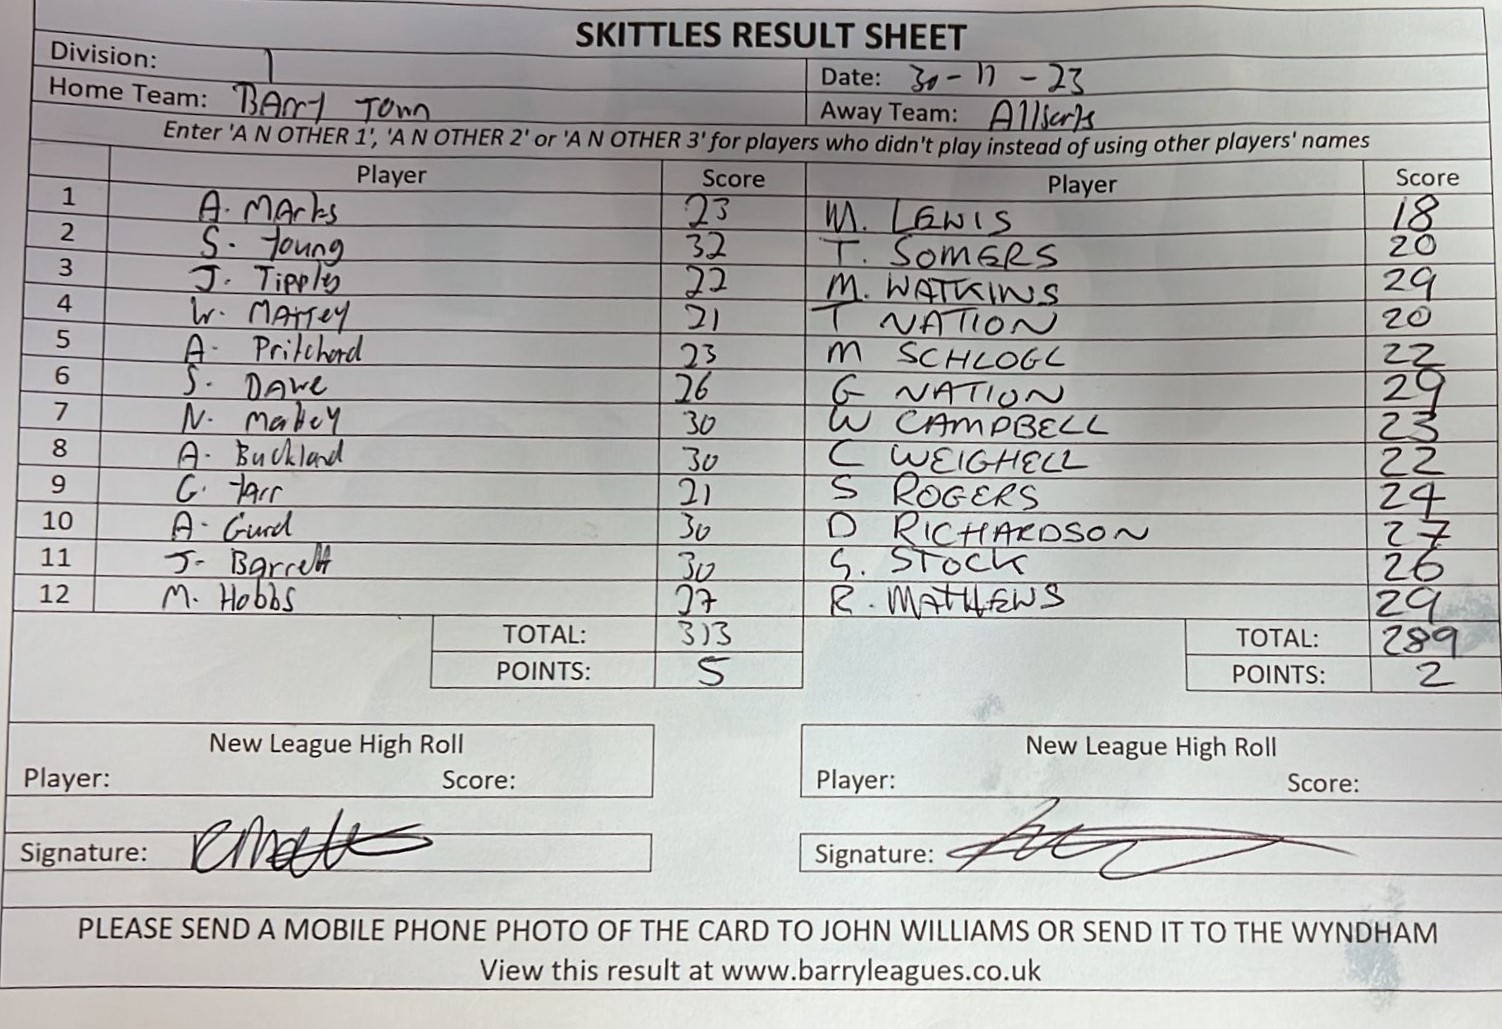 SKITTLES RESULT SHEET
Division: 1
Date: 30-11-23
Home Team: BArry Town
Away Team: Allsorts
Enter 'A N OTHER 1', 'A N OTHER 2' or 'A N OTHER 3' for players who didn't play instead of using other players' names
Player Score Player Score
1 A. MArks 23 M. LEWIS 18
2 S. Young 32 T. SOMERS 20
3 J. Tipples 22 M. WATKINS 29
4 W. 21 T NATION 20
5 A. Pritchard 23 M SCHLOGL 22
6 S. DAwe 26 G NATION 29
7 N. 30 W CAMPBELL 23
8 A. Buckland 30 C WEIGHELL 22
9 G. Tarr 21 S ROGERS 24
10 A. Gurd 30 D RICHARDSON 27
11 J. Barrett 30 S. STOCK 26
12 M. Hobbs 27 R. MATHEWS 29
TOTAL: 313 TOTAL: 289
POINTS: 5 POINTS: 2
New League High Roll New League High Roll
Player: Score: Player: Score:
Signature: Signature:
PLEASE SEND A MOBILE PHONE PHOTO OF THE CARD TO JOHN WILLIAMS OR SEND IT TO THE WYNDHAM
View this result at www.barryleagues.co.uk